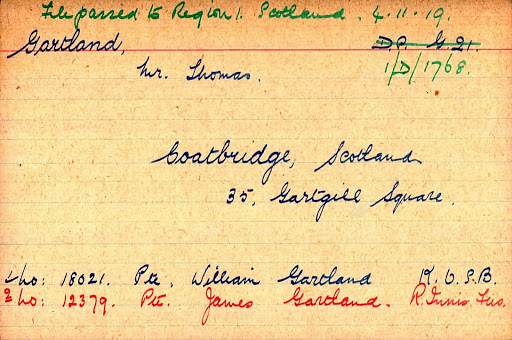 File passed to Region 1. Scotland. 4.11.19.
Gartland, D.P. G.21.
Mr. Thomas. 1/D/1768.
Coatbridge, Scotland
35, Gartgill Square.
No: 18021. Pte. William Gartland K.O.S.B.
No: 12379. Pte. James Gartland. R. Innis. Fus.